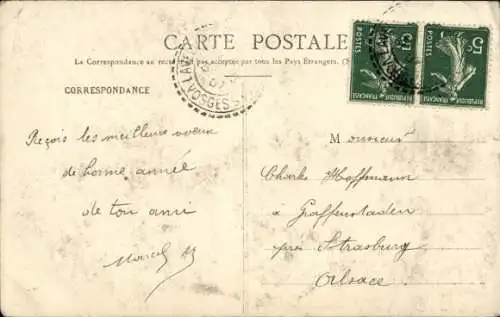 CARTE POSTALE
La Correspondance au recto n'est pas acceptée par tous les Pays Étrangers.
CORRESPONDANCE
LAVE
VOSGES
5c
POSTES
REPUBLIQUE FRANÇAISE
5c
POSTES
REPUBLIQUE FRANÇAISE
Reçois les meilleurs voeux
de bonne année
de ton ami
Marcel
Monsieur
Charles Hoffmann
à Graffenstaden
près Strasburg
Alsace